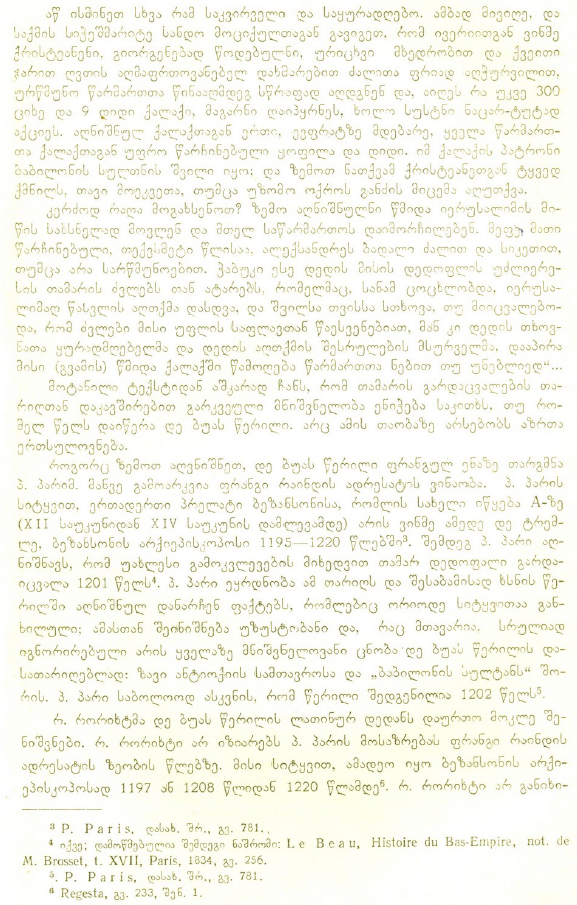 აწ ისმინეთ სხვა რამ საკვირველი და საყურადღებო. ამბად მივიღე, და
საქმის სიჭეშმარიტე სანდო მოციქულთაგან გავიგეთ, რომ ივერიითგან ვინმე
ქრისტეანენი, გიორგენებად წოდებულნი, ურიცხვი მხედრობით და ქვეითი
ჯარით ღვთის აღმაფრთოვანებელ დახმარებით ძალითა ფრიად აღჭურვილით,
ურწმუნო წარმართთა წინააღმდეგ სწრაფად აღდგნენ და, აიღეს რა უკვე 300
ციხე და 9 დიდი ქალაქი, მაგარნი დაიპყრნეს, ხოლო სუსტნი ნაცარ-ტუტად
აქციეს. აღნიშნულ ქალაქთაგან ერთი, ევფრატზე მდებარე, ყველა წარმართ-
თა ქალაქთაგან უფრო წარჩინებული ყოფილა და დიდი. იმ ქალაქის პატრონი
ბაბილონის სულთნის შვილი იყო; და ზემოთ ნათქვამ ქრისტეანეთგან ტყვედ
ქმნილს, თავი მოეკვეთა, თუმცა უზომო ოქროს განძის მიცემა აღუთქვა.
კერძოდ რაღა მოგახსენოთ? ზემო აღნიშნულნი წმიდა იერუსალიმის მი-
წის სახსნელად მოვლენ და მთელ საწარმართოს დაიმორჩილებენ. მეფე მათი
წარჩინებული, თექვსმეტი წლისაა, ალექსანდრეს ბადალი ძალით და სიკეთით,
თუმცა არა სარწმუნოებით. ჭაბუკი ესე დედის მისის დედოფლის უძლიერე-
სის თამარის ძვლებს თან ატარებს, რომელმაც, სანამ ცოცხლობდა, იერუსა-
ლიმად წასვლის აღთქმა დასდვა, და შვილსა თვისსა სთხოვა, თუ მიიცვალებო-
და, რომ ძვლები მისი უფლის საფლავთან წაესვენებიათ, მან კი დედის თხოვ-
ნათა ყურადმღებელმა და დედის აღთქმის შესრულების მსურველმა, დააპირა
მისი (გვამის) წმიდა ქალაქში წამოღება წარმართთა ნებით თუ უნებლიედ“...
მოტანილი ტექსტიდან აშკარად ჩანს, რომ თამარის გარდაცვალების თა-
რიღთან დაკავშირებით გარკვეული მნიშვნელობა ენიჭება საკითხს, თუ რო-
მელ წელს დაიწერა დე ბუას წერილი. არც ამის თაობაზე არსებობს აზრთა
ერთსულოვნება.
როგორც ზემოთ აღვნიშნეთ, დე ბუას წერილი ფრანგულ ენაზე თარგმნა
პ. პარიმ. მანვე გამოარკვია ფრანგი რაინდის ადრესატის ვინაობა. პ. პარის
სიტყვით, ერთადერთი პრელატი ბეზანსონისა, რომლის სახელი იწყება A-ზე
(XII საუკუნიდან XIV საუკუნის დამლევამდე) არის ვინმე ამედე დე ტრემ-
ლე, ბეზანსონის არქიეპისკოპოსი 1195—1220 წლებში³. შემდეგ პ. პარი აღ-
ნიშნავს, რომ უახლესი გამოკვლევების მიხედვით თამარ დედოფალი გარდა-
იცვალა 1201 წელს⁴. პ. პარი ეყრდნობა ამ თარიღს და შესაბამისად ხსნის წე-
რილში აღნიშნულ დანარჩენ ფაქტებს, რომლებიც ორიოდე სიტყვითაა გან-
ხილული; ამასთან შეინიშნება უზუსტობანი და, რაც მთავარია, სრულიად
იგნორირებული არის ყველაზე მნიშვნელოვანი ცნობა დე ბუას წერილის და-
სათარიღებლად: ზავი ანტიოქიის სამთავროსა და „ბაბილონის სულტანს“ შო-
რის. პ. პარი საბოლოოდ ასკვნის, რომ წერილი შედგენილია 1202 წელს⁵.
რ. რორიხტმა დე ბუას წერილის ლათინურ დედანს დაურთო მოკლე შე-
ნიშვნები. რ. რორიხტი არ იზიარებს პ. პარის მოსაზრებას ფრანგი რაინდის
ადრესატის ზეობის წლებზე. მისი სიტყვით, ამადეო იყო ბეზანსონის არქი-
ეპისკოპოსად 1197 ან 1208 წლიდან 1220 წლამდე⁶. რ. რორიხტი არ განიხი-
³ P. Paris, დასახ. შრ., გვ. 781.
⁴ იქვე; დამოწმებულია შემდეგი ნაშრომი: Le Beau, Histoire du Bas-Empire, not. de
M. Brosset, t. XVII, Paris, 1834, გვ. 256.
⁵. P. Paris, დასახ. შრ., გვ. 781.
⁶ Regesta, გვ. 233, შენ. 1.